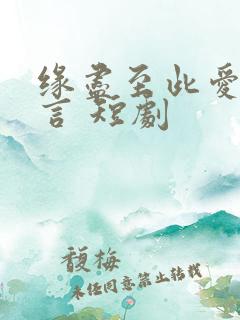 缘尽至此爱
言 短劇
馥梅
未任同意禁止转载